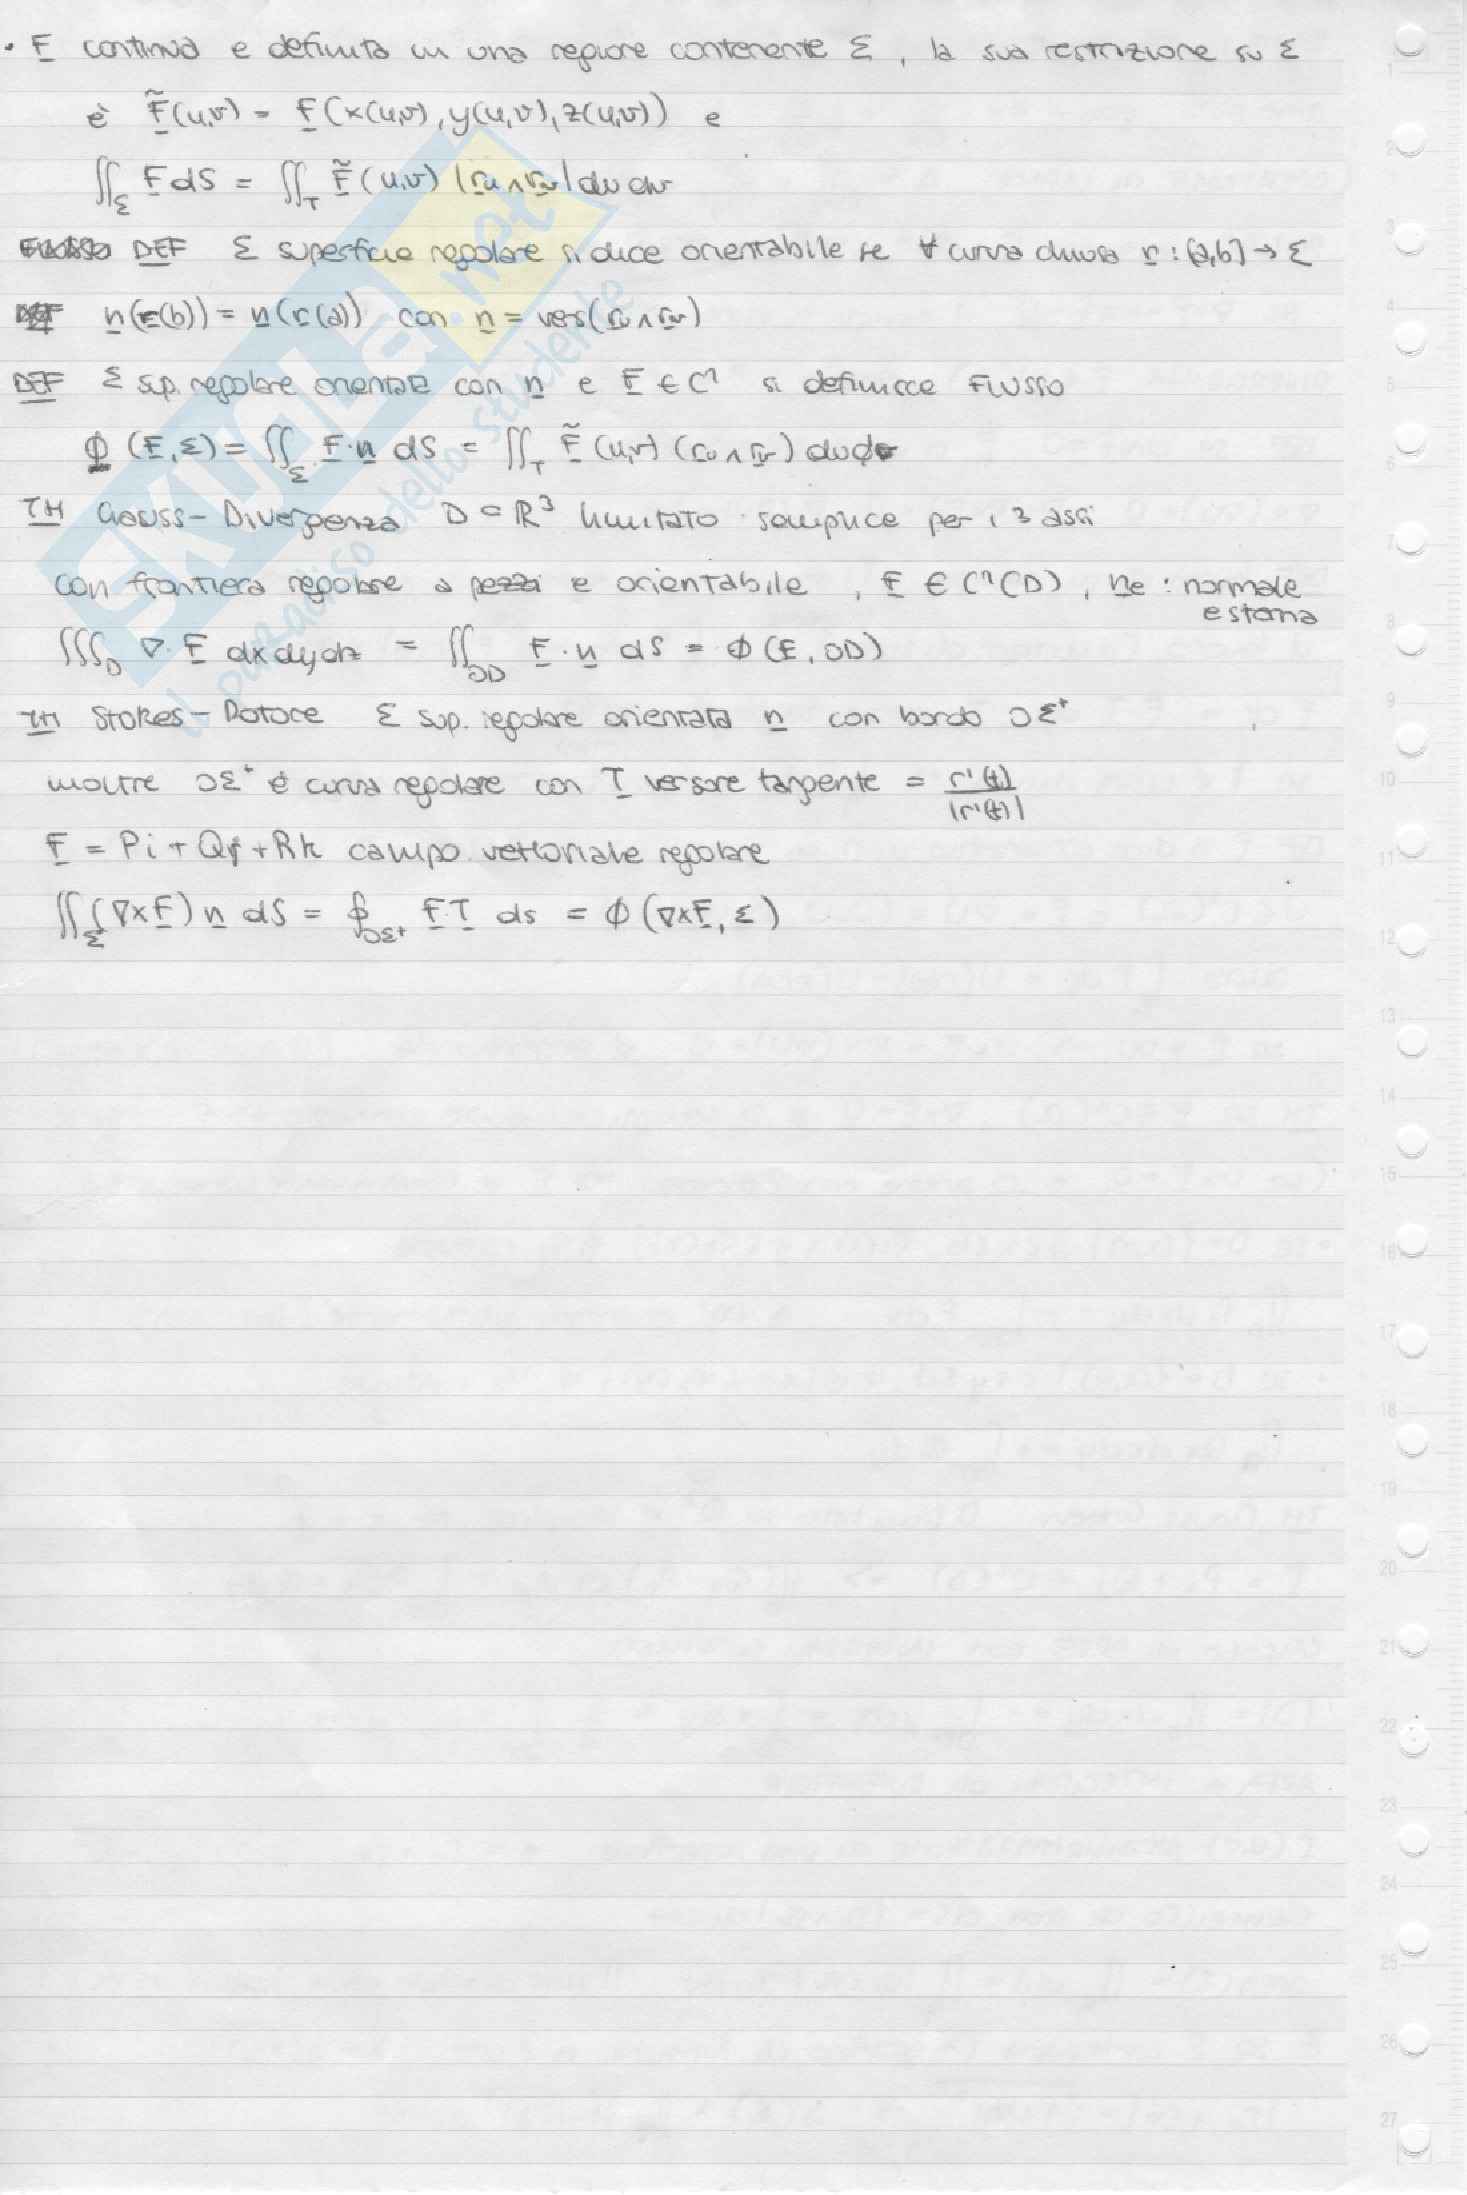 • F continua e definita in una regione contenente Σ, la sua restrizione su Σ
è F̃(u,v) = F(x(u,v), y(u,v), z(u,v)) e
∬_Σ F dS = ∬_T F̃(u,v) |r_u ∧ r_v| du dv
DEF Σ superficie regolare si duce orientabile se ∀ curva chiusa r : [a,b] → Σ
n(r(b)) = n(r(a)) con n = vers(r_u ∧ r_v)
DEF Σ sup. regolare orientata con n e F ∈ C¹ si definisce FLUSSO
Φ (F,Σ) = ∬_Σ F·n dS = ∬_T F̃(u,v) (r_u ∧ r_v) du dv
TH Gauss-Divergenza D ⊂ ℝ³ limitato semplice per i 3 assi
con frontiera regolare a pezzi e orientabile, F ∈ C¹(D), ne : normale
esterna
∭_D ∇·F dxdydz = ∬_∂D F·n dS = Φ(F, ∂D)
TH Stokes-Rotore Σ sup. regolare orientata n con bordo ∂Σ⁺
inoltre ∂Σ⁺ è curva regolare con T versore tangente = r'(t)/|r'(t)|
F = Pi + Qj + Rk campo vettoriale regolare
∬_Σ (∇×F) n dS = ∮_∂Σ⁺ F·T ds = Φ(∇×F, Σ)
SKUOLA.net
il paradiso dello studente
1
2
3
4
5
6
7
8
9
10
11
12
13
14
15
16
17
18
19
20
21
22
23
24
25
26
27